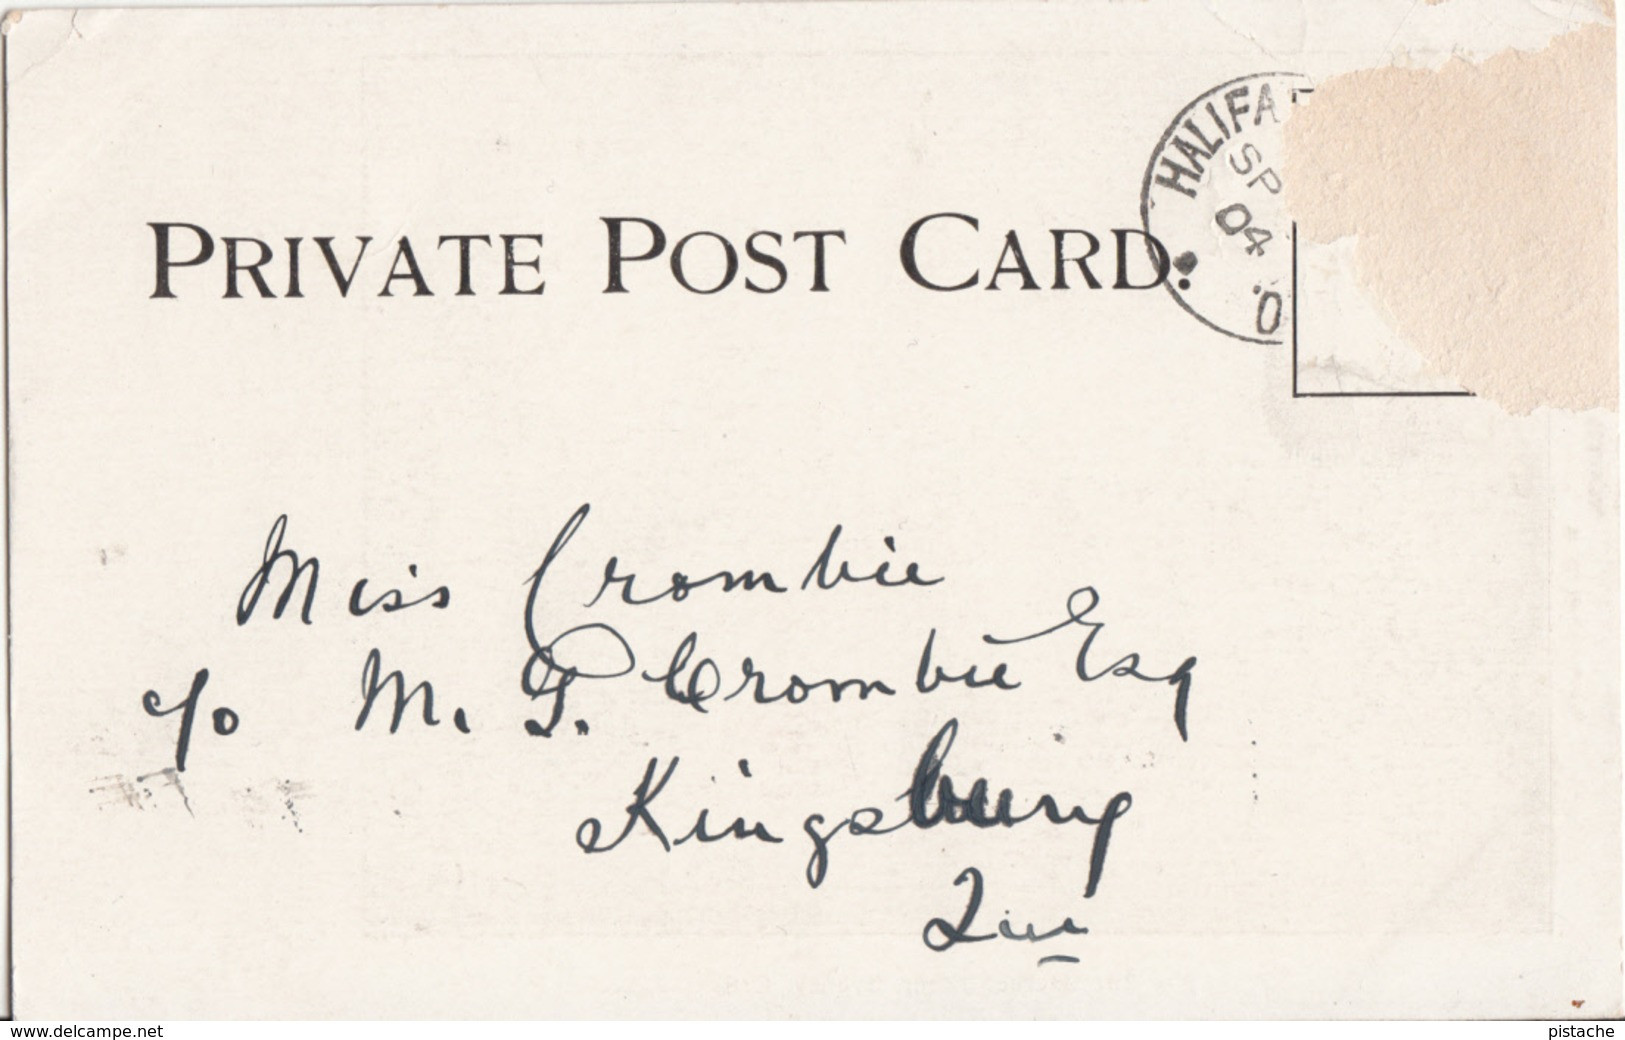 PRIVATE POST CARD.
HALIFA
SP
04
.0
Miss Crombie
c/o M. G. Crombie Esq
Kingsbury
Que
www.delcampe.net
pistache